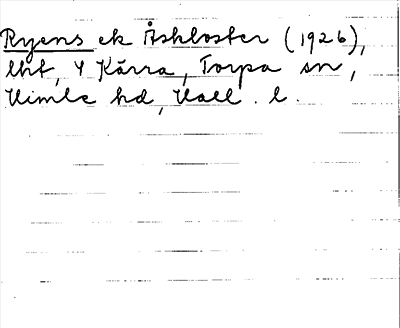 Ryens ek Åskloster (1926),
lht, 4 Kärra, Torpa sn,
Himle hd, Hall. l.